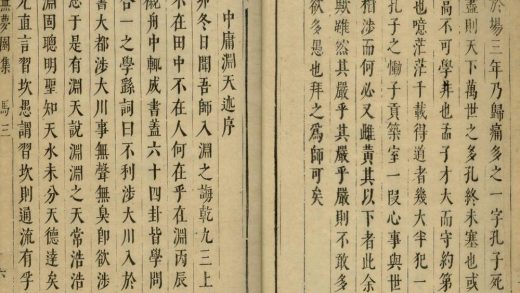 於場三年乃歸痛多之一字孔子死
盡則天下萬世之多孔終未塞也或
高不可學并也孟子才大而守約第
也噫茫茫千載得道者幾大半犯一
孔子之慟子貢築室一叚心事與世
相涉而何必又雌黃其以下者此余
獸雖然其嚴乎其嚴乎嚴則不敢多
欲多愚也拜之爲師可矣
中庸淵天迹序
卯冬日聞吾師入淵之誨乾九三上
不在田中不在人何在乎在淵丙辰
舟中輒書蓋六十四卦皆學問
合一之學繇詞曰不利涉大川入於
書大都涉大川事無聲無臭卽欲涉
於是有淵天說淵淵之天常浩浩
淵固聰明聖知天水未分天德達矣
直言習坎愚謂習坎則過流有孚
無夢園集 馬三 六